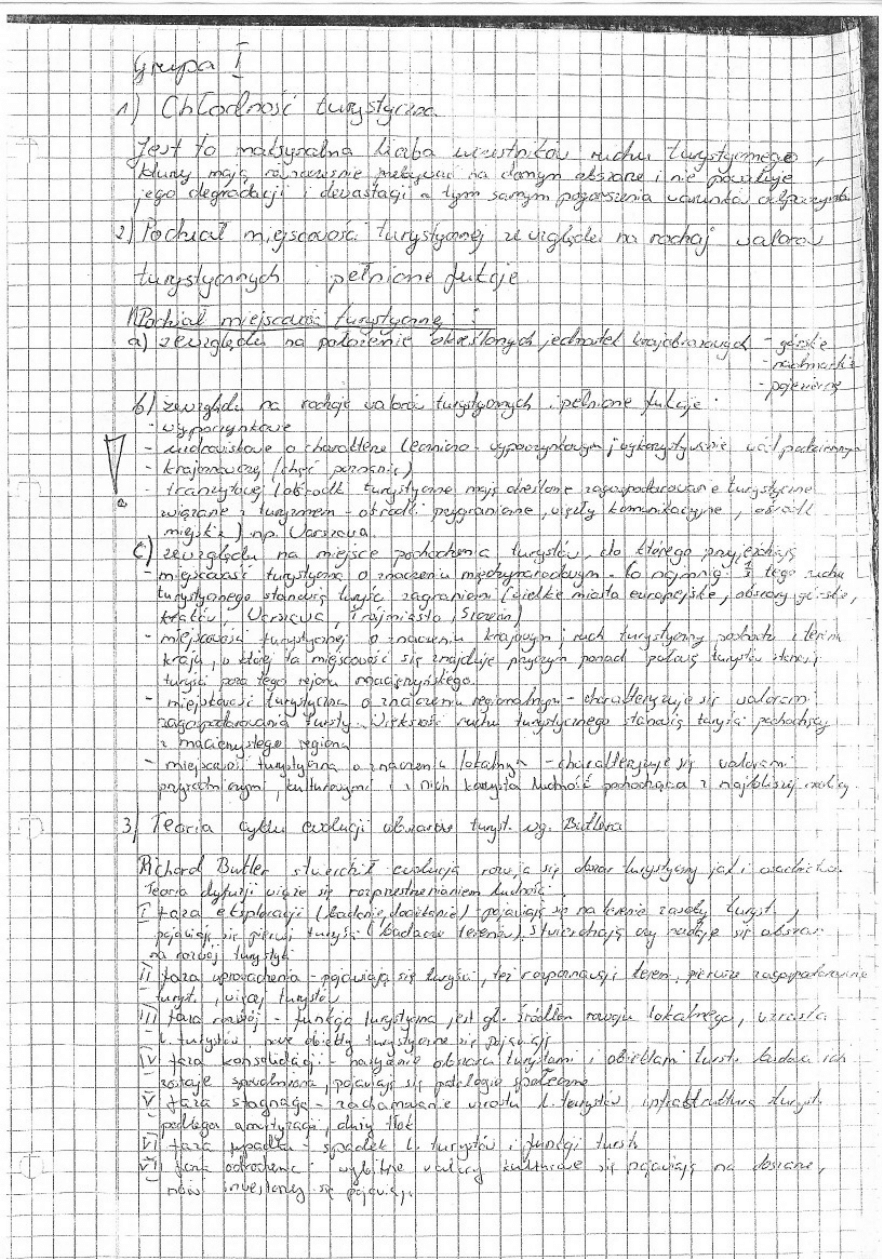 Grupa I
1) Chłodność turystyczna
Jest to maksymalna liczba uczestników ruchu turystycznego,
którzy mają równocześnie przebywać na danym obszarze i nie powoduje
jego degradacji i devastacji a tym samym pogorszenia warunków odpoczynku
2) Podział miejscowości turystycznej ze względu na rodzaj walorów
turystycznych i pełnione fukcje
Podział miejscowości turystycznej:
a) ze względu na położenie określonych jednostek krajobrazowych - górskie
- nadmorskie
- pojezierne
b) ze względu na rodzaje walorów turystycznych i pełnione fukcje:
- wypoczynkowe
- uzdrowiskowe o charakterze leczniczo-wypoczynkowym, wykorzystywanie wód podziemnych
- krajoznawczej (chęć poznania)
- tranzytowej (ośrodki turystyczne mają określone zagospodarowanie turystyczne
związane z turyzmem - ośrodki przygraniczne, węzły komunikacyjne, ośrodki
miejskie) np. Warszawa.
c) ze względu na miejsce pochodzenia turystów, do którego przyjeżdżają
- miejscowość turystyczna o znaczeniu międzynarodowym - co najmniej 1/3 tego ruchu
turystycznego stanowią turyści zagraniczni (wielkie miasta europejskie, obszary górskie,
Kraków, Warszawa, Trójmiasto,
- miejscowości turystycznej o znaczeniu krajowym, ruch turystyczny pochodzi z terenu
kraju, w której ta miejscowość się znajduje przyczym ponad połowę turystów stanowi
turyści poza tego rejonu macierzyńskiego.
- miejscowość turystyczna o znaczeniu regionalnym - charakteryzuje się walorami
zagospodarowania turysty. Większość ruchu turystycznego stanowią turyści pochodzący
z macierzystego regionu
- miejscowość turystyczna o znaczeniu lokalnym - charakteryzuje się walorami
przyrodniczymi, kulturowymi i z nich korzysta ludność pochodząca z najbliższej okolicy.
3) Teoria cyklu ewolucji obszarów turyst. wg. Butlera
Richard Butler stwierdził ewolucją rozwija się obszar turystyczny jak i osadnictwo.
Teoria dyfuzji wiąże się rozprzestrzenianiem ludności.
I faza eksploracji (badanie, docieranie) - pojawiają się na terenie zasoby turyst.,
pojawiają się pierwsi turyści (badacze terenów), stwierdzają czy nadaje się obszar
na rozwój turystyki
II faza wprowadzenia - pojawiają się turyści, też rozpoznawają teren, pierwsze zagospodarowanie
turyst., więcej turystów
III faza rozwój - funkcja turystyczna jest gł. źródłem rozwoju lokalnego, wzrasta
l. turystów, nowe obiekty turystyczne się pojawiają
IV faza konsolidacji - nasycenie obszaru turystami i obiektami turst. budowa ich
zostaje spowolniona, pojawiają się patologie społeczne
V faza stagnacja - zachamowanie wzrostu l. turystów, infrastruktura turyst.
podlega amortyzacji, duży tłok
VI faza upadku - spadek l. turystów i funkcji turst.
VII faza odrodzenia - wybitne walory kulturowe się pojawiają na obszarze,
nowi inwestorzy się pojawiają.